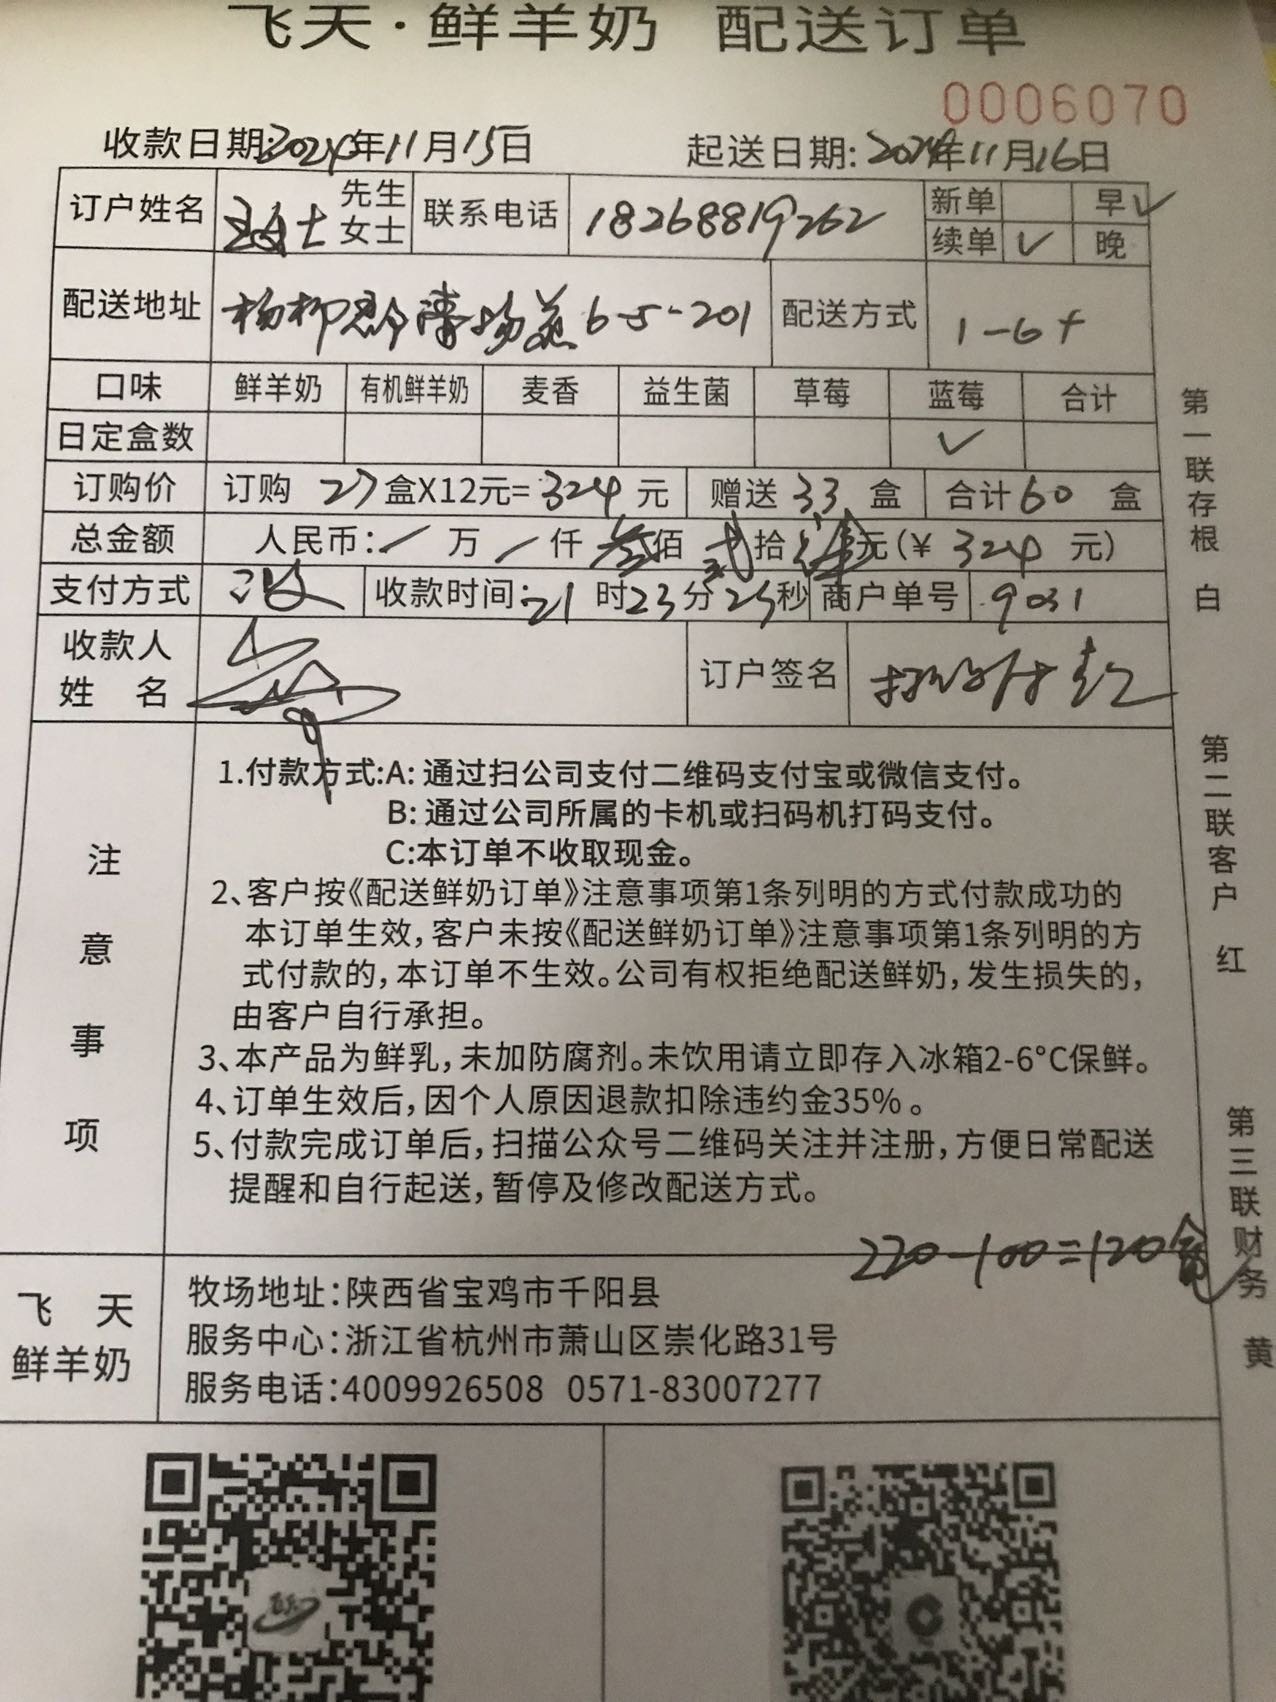 飞天·鲜羊奶 配送订单
0006070
收款日期:2024年11月15日 起送日期:2024年11月16日
订户姓名 女士 先生 女士 联系电话 18268819262 新单 早✓
续单 ✓ 晚
配送地址 杨柳郡 6-5-201 配送方式 1-6+
口味 鲜羊奶 有机鲜羊奶 麦香 益生菌 草莓 蓝莓 合计
日定盒数 ✓
订购价 订购 27 盒X12元= 324 元 赠送 33 盒 合计 60 盒
总金额 人民币: / 万 / 仟 叁 佰 贰 拾 肆 元(¥ 324 元)
支付方式 收款时间: 21 时 23 分 25 秒 商户单号 9031
收款人
姓 名
订户签名 扫码付款
注意事项
1.付款方式:A: 通过扫公司支付二维码支付宝或微信支付。
B: 通过公司所属的卡机或扫码机打码支付。
C:本订单不收取现金。
2、客户按《配送鲜奶订单》注意事项第1条列明的方式付款成功的
本订单生效,客户未按《配送鲜奶订单》注意事项第1条列明的方
式付款的,本订单不生效。公司有权拒绝配送鲜奶,发生损失的,
由客户自行承担。
3、本产品为鲜乳,未加防腐剂。未饮用请立即存入冰箱2-6°C保鲜。
4、订单生效后,因个人原因退款扣除违约金35%。
5、付款完成订单后,扫描公众号二维码关注并注册,方便日常配送
提醒和自行起送,暂停及修改配送方式。
220-100=120盒
飞 天
鲜羊奶
牧场地址:陕西省宝鸡市千阳县
服务中心:浙江省杭州市萧山区崇化路31号
服务电话:4009926508 0571-83007277
第一联存根 白
第二联客户 红
第三联财务 黄